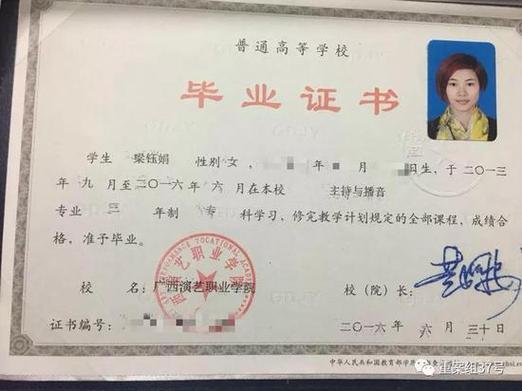 普通高等学校
毕业证书
学生 梁钰娟 性别 女 , 年 月 日生, 于二〇一三
年 九 月至二〇一六年 六 月在本校 主持与播音
专业 三 年制 专 科学习, 修完教学计划规定的全部课程, 成绩合
格, 准予毕业。
校 名: 广西演艺职业学院 校(院)长:
证书编号: 二〇一六年 六 月 三十日
中华人民共和国教育部学
重案组37号